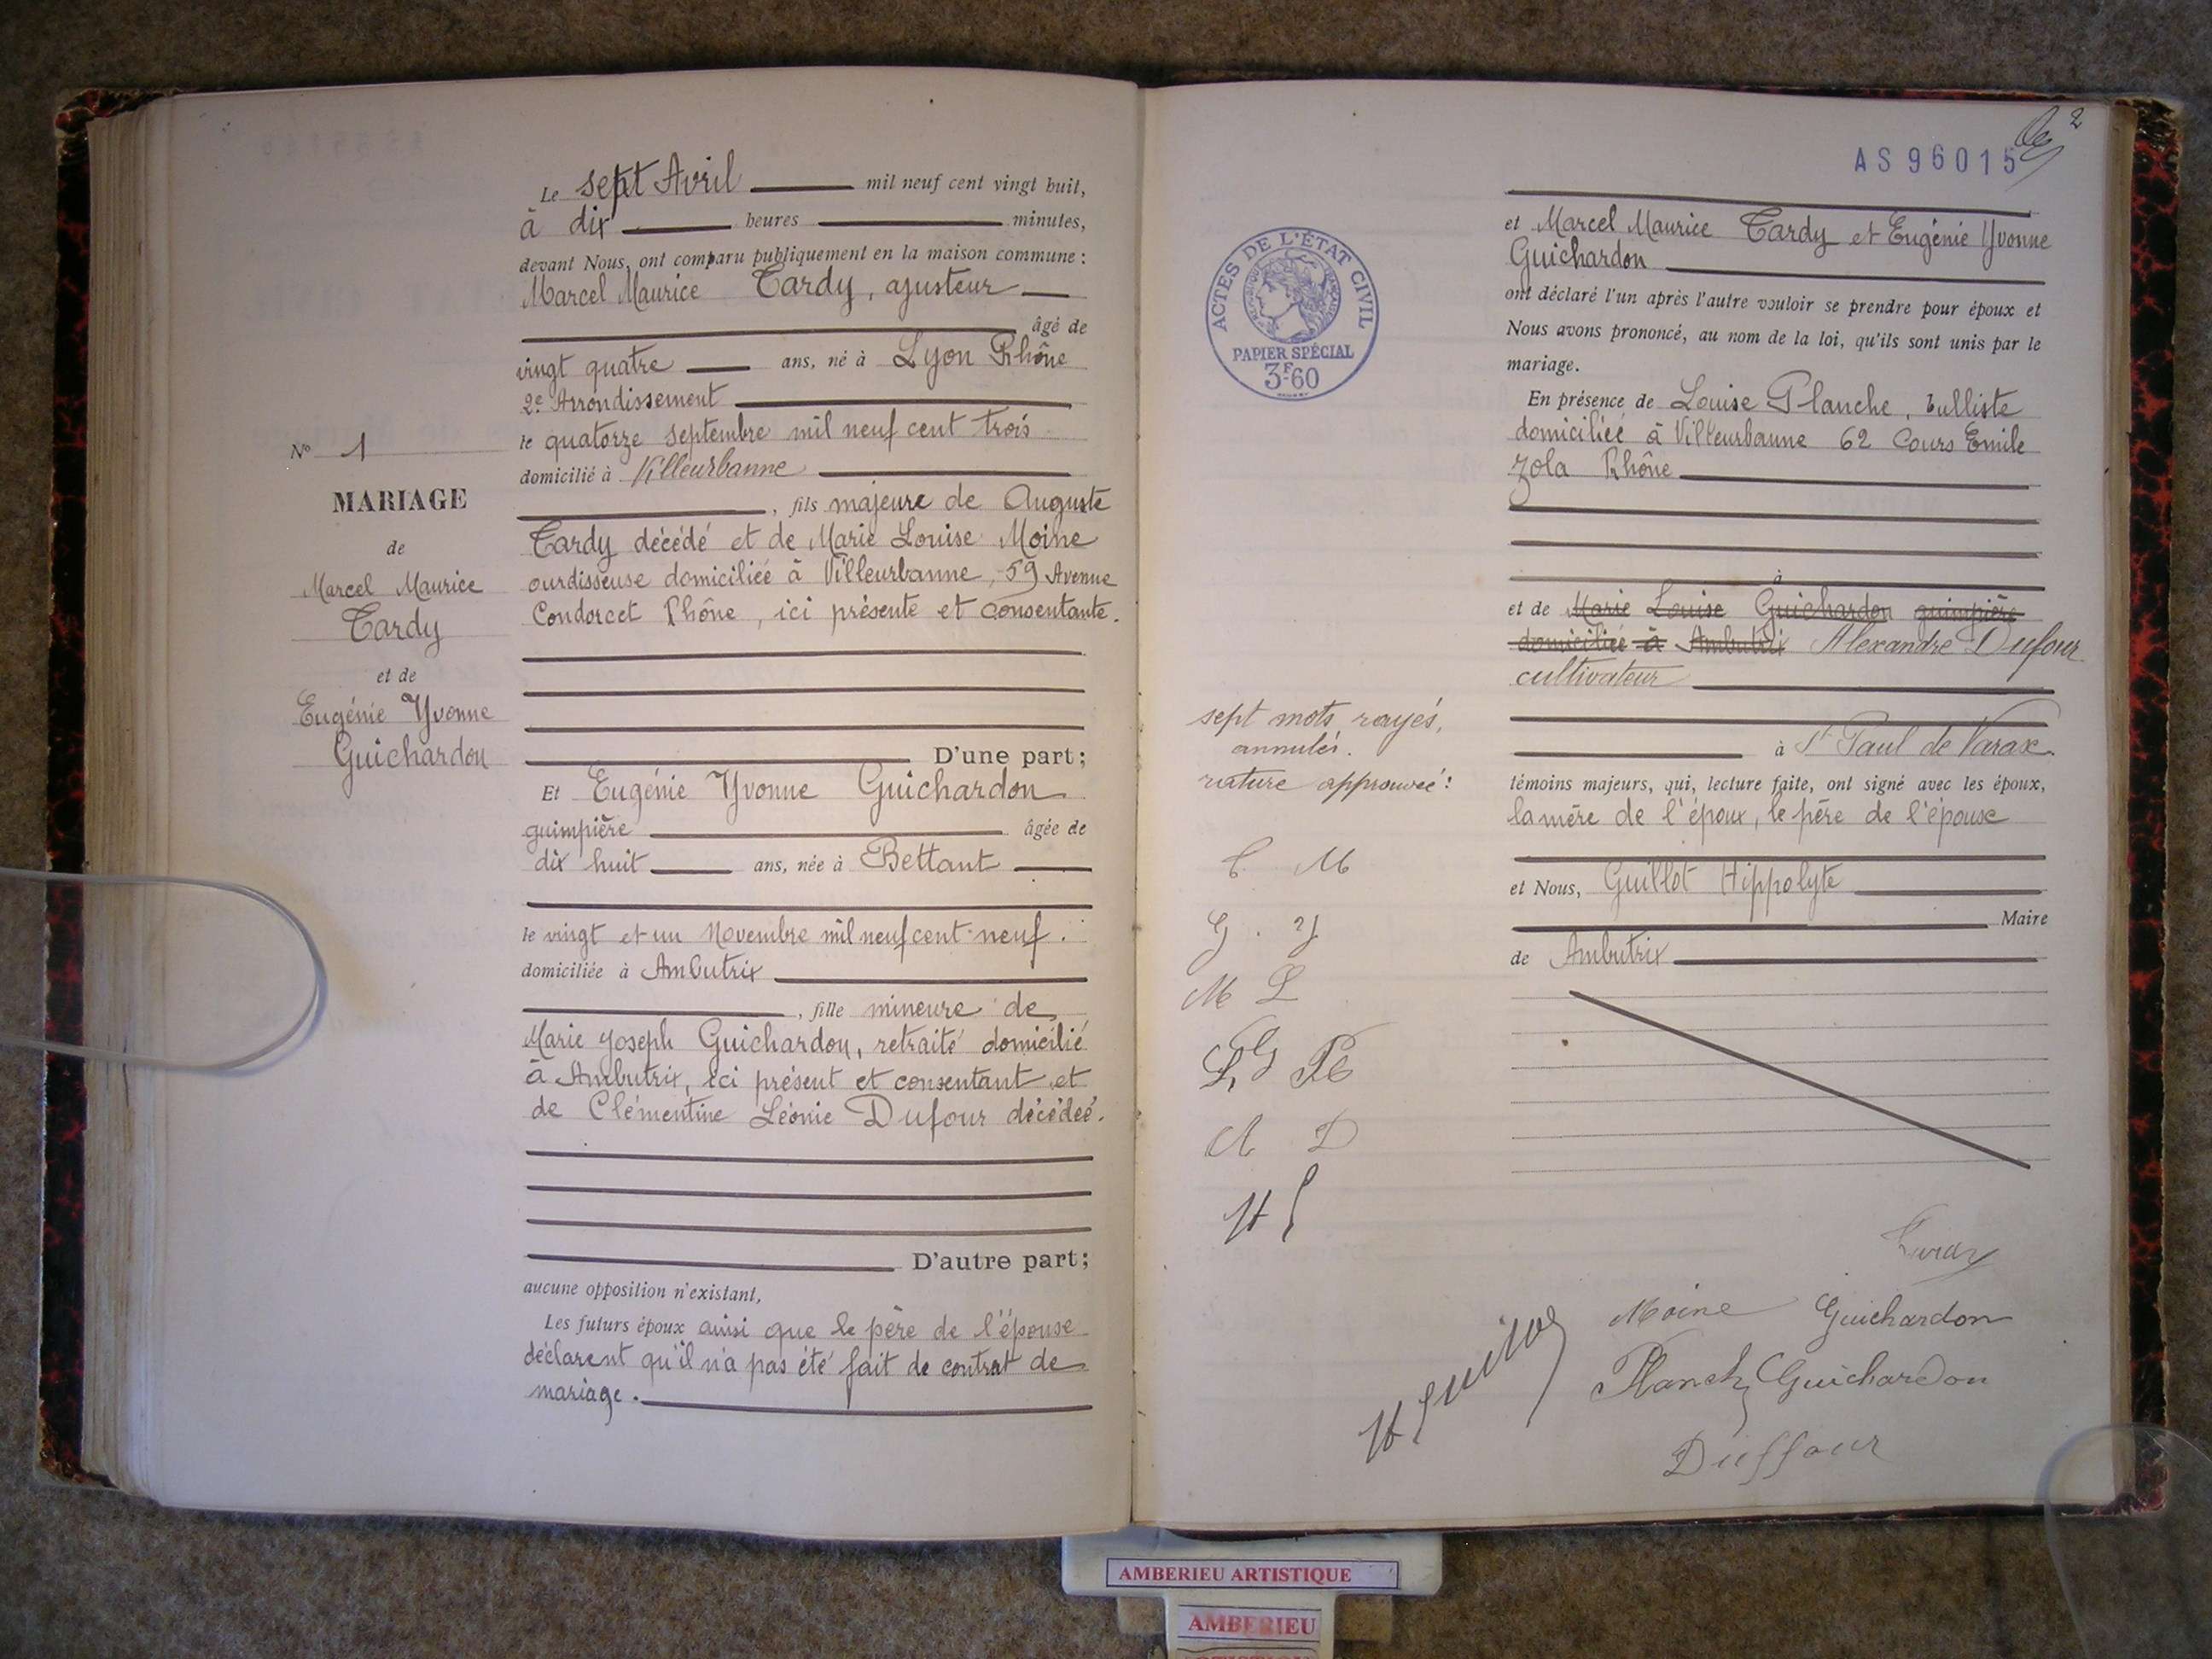 N° 1
MARIAGE
de
Marcel Maurice
Tardy
et de
Eugénie Yvonne
Guichardon
Le sept Avril mil neuf cent vingt huit,
à dix heures minutes,
devant Nous, ont comparu publiquement en la maison commune :
Marcel Maurice Tardy, ajusteur
âgé de
vingt quatre ans, né à Lyon Rhône
2e Arrondissement
le quatorze septembre mil neuf cent trois
domicilié à Villeurbanne
, fils majeure de Auguste
Tardy décédé et de Marie Louise Moine
ourdisseuse domiciliée à Villeurbanne, 59 Avenue
Condorcet Rhône, ici présente et consentante.
D'une part;
Et Eugénie Yvonne Guichardon
guimpière âgée de
dix huit ans, née à Bettant
le vingt et un Novembre mil neuf cent neuf.
domiciliée à Ambutrix
, fille mineure de
Marie Joseph Guichardon, retraité domicilié
à Ambutrix, ici présent et consentant et
de Clémentine Léonie Dufour décédée.
D'autre part;
aucune opposition n'existant,
Les futurs époux ainsi que le père de l'épouse
déclarent qu'il n'a pas été fait de contrat de
mariage.
2
AS96015
ACTES DE L'ÉTAT CIVIL
PAPIER SPÉCIAL
3F60
et Marcel Maurice Tardy et Eugénie Yvonne
Guichardon
ont déclaré l'un après l'autre vouloir se prendre pour époux et
Nous avons prononcé, au nom de la loi, qu'ils sont unis par le
mariage.
En présence de Louise Planche, tulliste
domiciliée à Villeurbanne 62 Cours Emile
Zola Rhône
à
et de Marie Louise Guichardon guimpière
domiciliée à Ambutrix Alexandre Dufour
cultivateur
à St Paul de Varax.
témoins majeurs, qui, lecture faite, ont signé avec les époux,
la mère de l'époux, le père de l'épouse
et Nous, Guillot Hippolyte
Maire
de Ambutrix
sept mots rayés,
annulés.
rature approuvée :
T. M
G. Y
M L
A D
Tardy
Moine Guichardon
H Guillot
Planche Guichardon
Duffour
AMBERIEU ARTISTIQUE
AMBERIEU